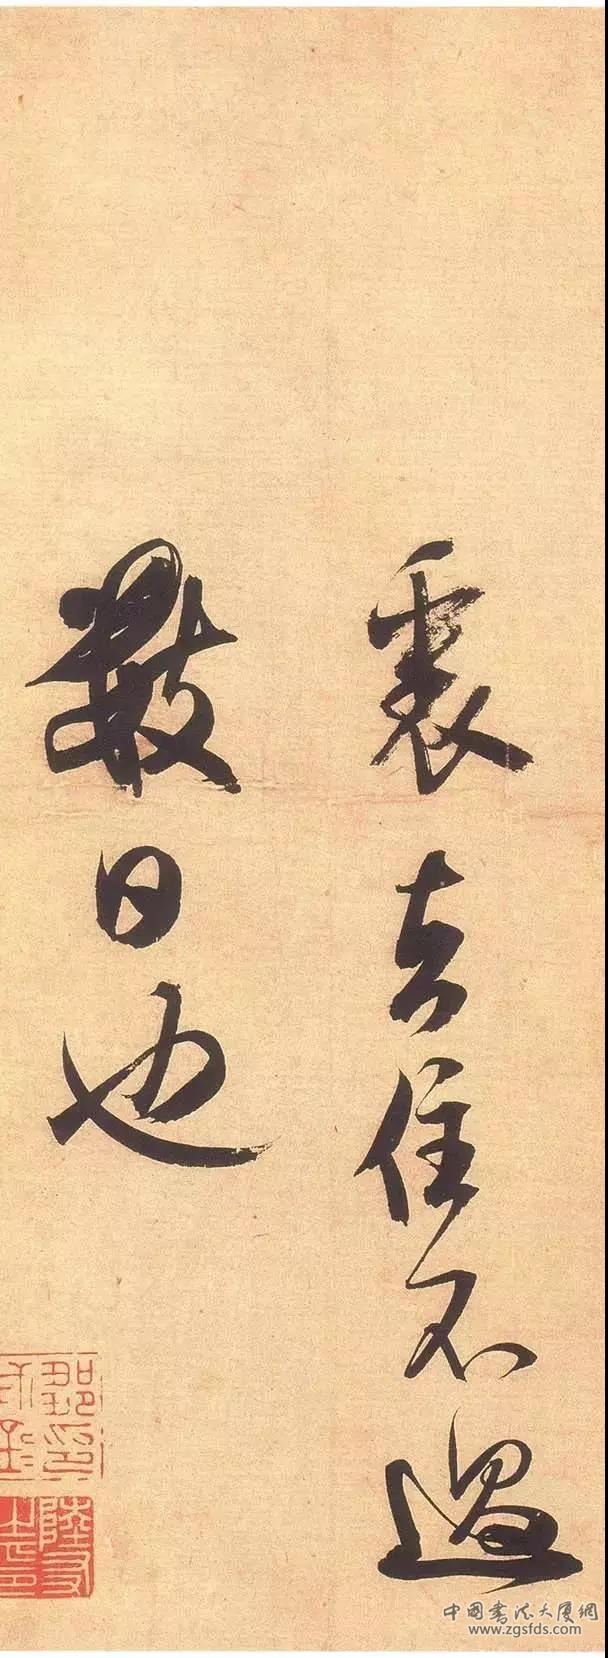 去住不過
數日也
中国书法大厦網
www.zgsfds.com